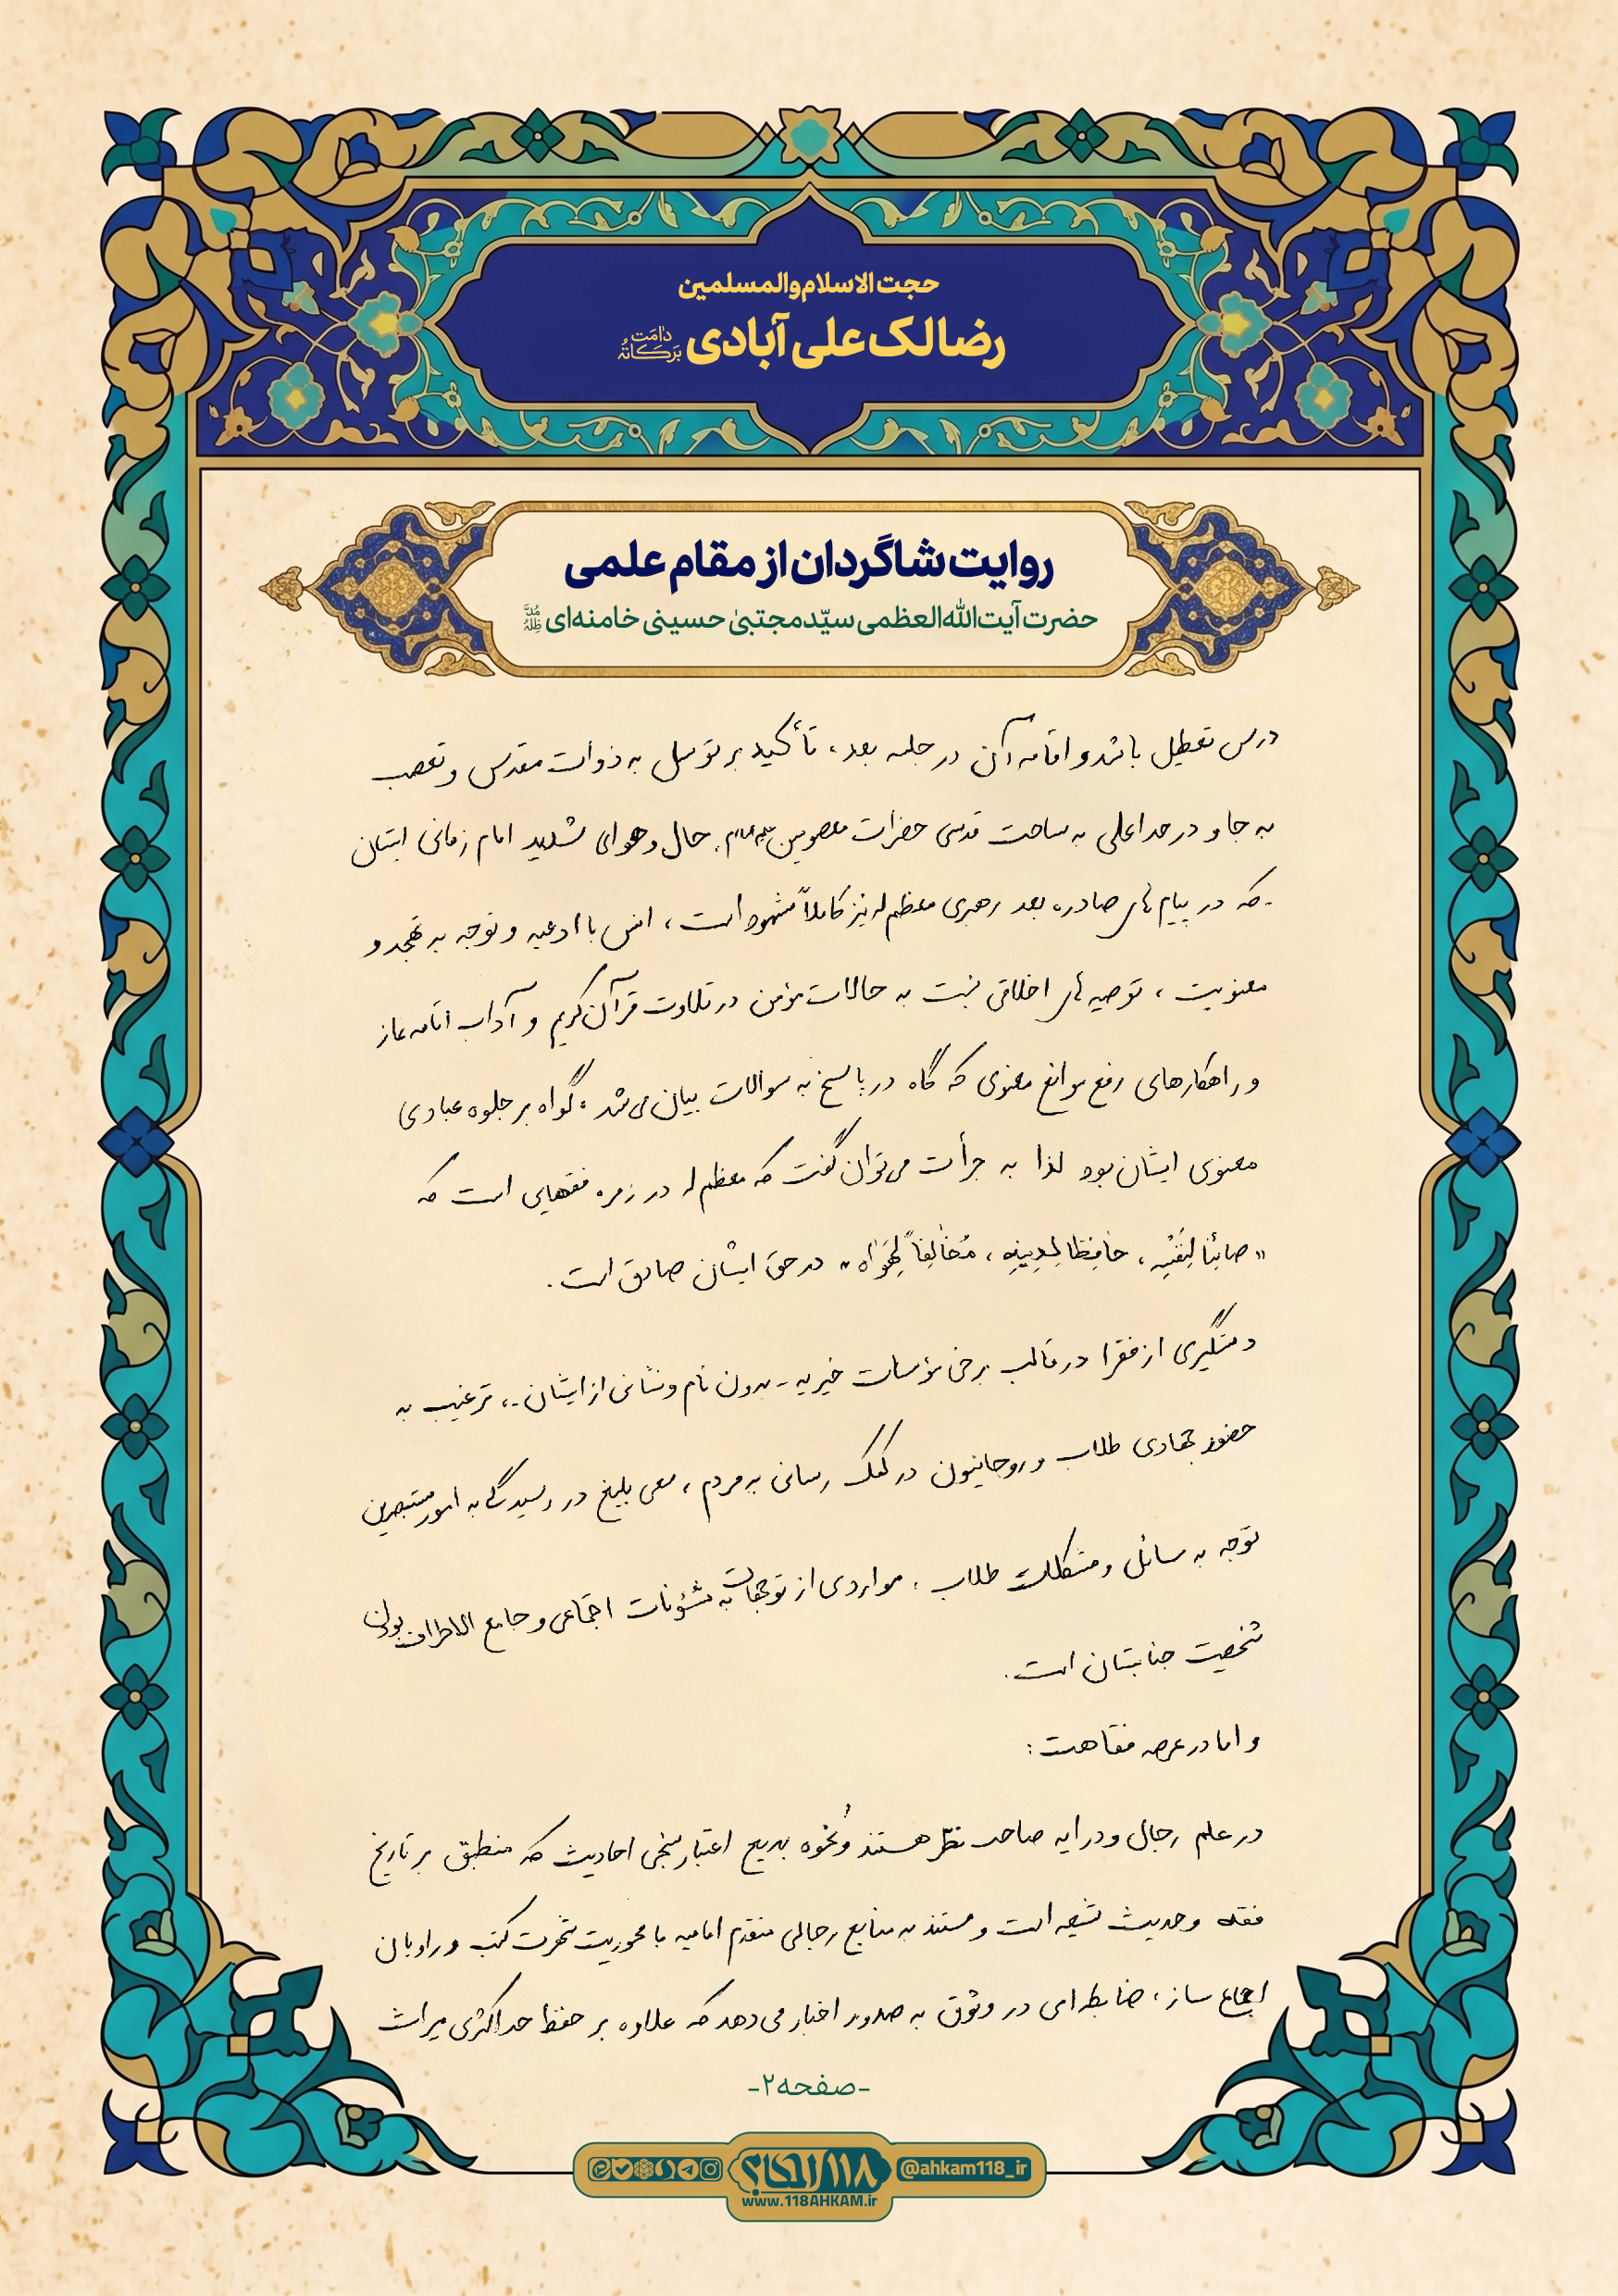 حجت الاسلام والمسلمین
رضا لک علی آبادی دامَت بَرَکاتُه
روایت شاگردان از مقام علمی
حضرت آیت‌الله‌العظمی سیّد مجتبیٰ حسینی خامنه‌ای مُدَّ ظِلُّه
درس تعطیل باشد و اقامه آن در جلسه بعد، تأکید بر توسل به ذوات مقدس و تعصب
به جا و در حد اعلی به ساحت قدسی حضرات معصومین علیهم‌السلام، حال و هوای شدید امام زمانی ایشان
-که در پیام‌های صادره بعد رهبری معظم‌له نیز کاملاً مشهود است، انس با ادعیه و توجه به تهجد و
معنویت، توصیه‌های اخلاقی نسبت به حالات مؤمن در تلاوت قرآن کریم و آداب اقامه نماز
و راهکارهای رفع موانع معنوی که گاه در پاسخ به سوالات بیان می‌شد، گواه بر جلوه عبادی
معنوی ایشان بود لذا به جرأت می‌توان گفت که معظم‌له در زمره فقهایی است که
"صائِناً لِنَفْسِه، حافِظاً لِدِینِه، مُخالِفاً لِهَواه" در حق ایشان صادق است.
دستگیری از فقرا در قالب برخی مؤسسات خیریه - بدون نام و نشانی از ایشان -، ترغیب به
حضور جهادی طلاب و روحانیون در کمک رسانی به مردم، سعی بلیغ در رسیدگی به امور مستبصرین
توجه به مسائل و مشکلات طلاب، مواردی از توجهات به شئونات اجتماعی و جامع الاطراف بودن
شخصیت جنابشان است.
و اما در عرصه فقاهت:
در علم رجال و درایه صاحب نظر هستند و نحوه بدیع اعتبار سنجی احادیث که منطبق بر تاریخ
فقه و حدیث شیعه است و مستند به منابع رجالی متقدم امامیه با محوریت شهرت کتب و راویان
اجماع ساز، ضابطه‌ای در وثوق به صدور اخبار می‌دهد که علاوه بر حفظ حداکثری میراث
-صفحه۲-
۱۱۸ احکام
@ahkam118_ir
www.118AHKAM.ir